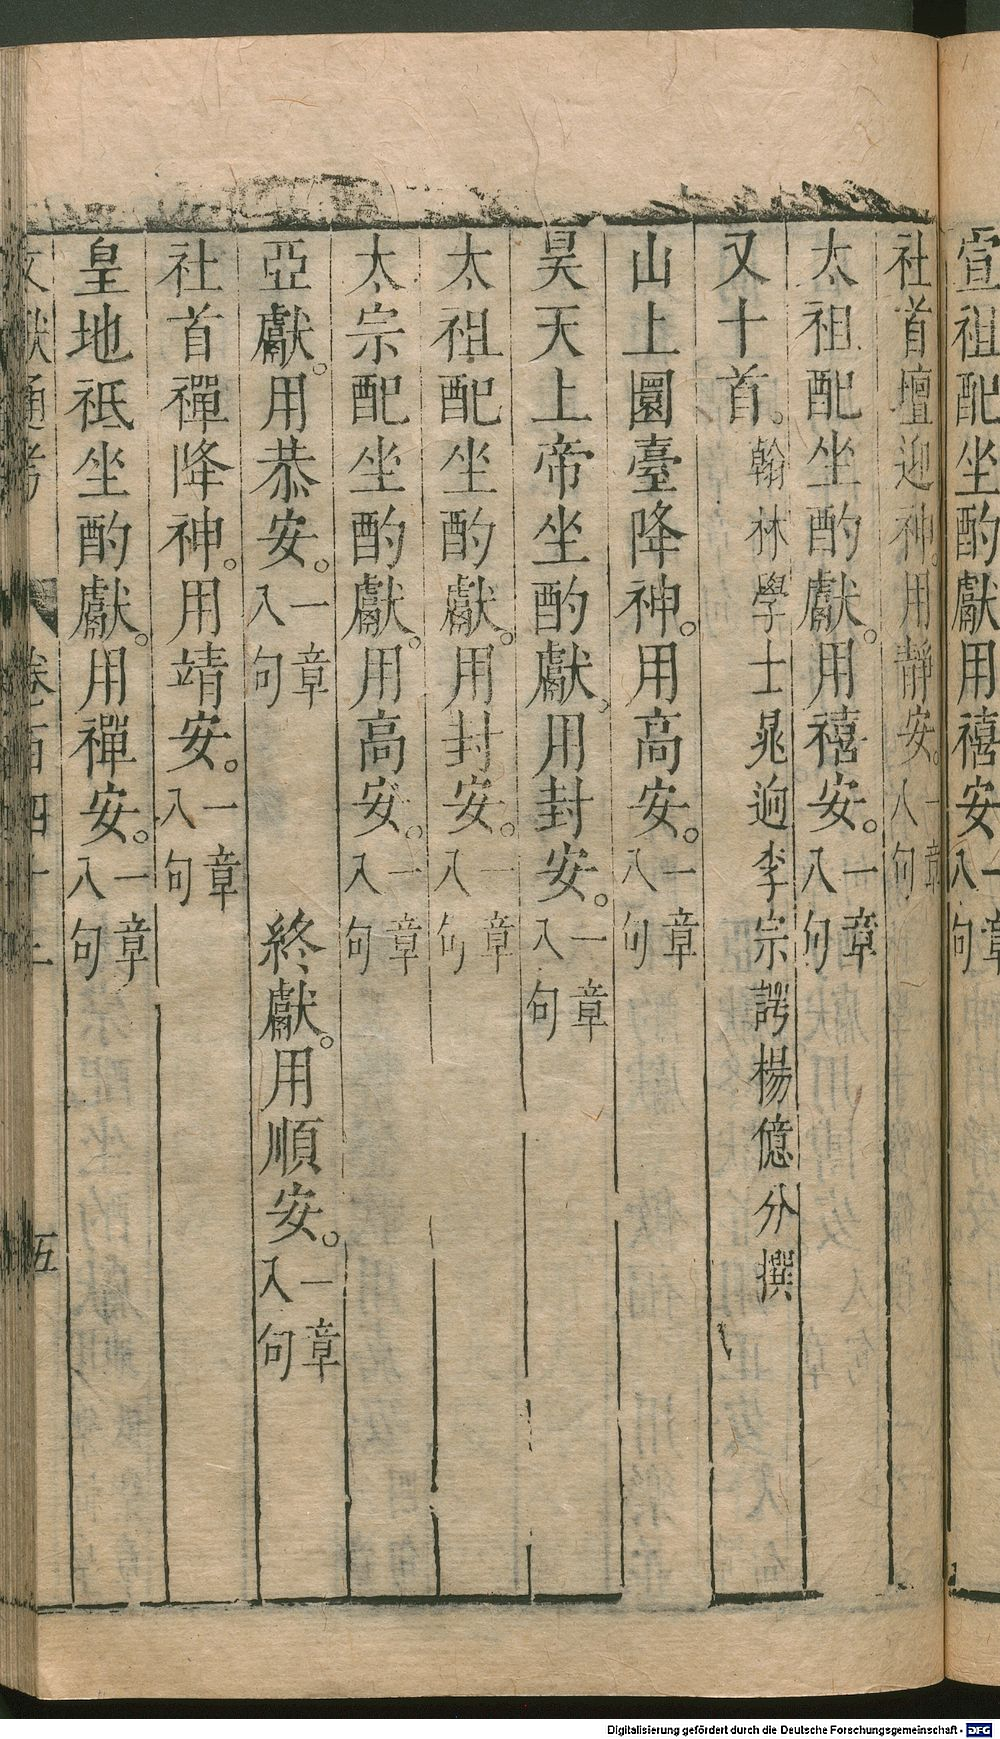 宣祖配坐酌獻用禧安一章八句
社首壇迎神。用靜安。一章八句
太祖配坐酌獻。用禧安。一章八句
又十首。翰林學士晁迥李宗諤楊億分撰
山上圜臺降神。用高安。一章八句
昊天上帝坐酌獻。用封安。一章八句
太祖配坐酌獻。用封安。一章八句
太宗配坐酌獻。用高安。一章八句
亞獻。用恭安。一章八句　終獻。用順安。一章八句
社首禪降神。用靖安。一章八句
皇地祇坐酌獻。用禪安。一章八句
文獻通考　卷百四十三　五
Digitalisierung gefördert durch die Deutsche Forschungsgemeinschaft - DFG